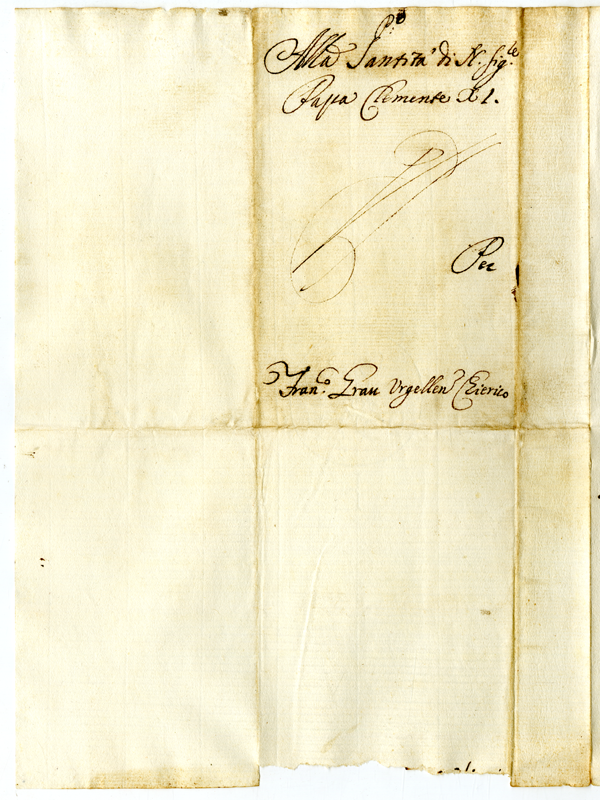 Pº
Alla Santità di N. Sig.re
Papa Clemente XI.
Per
Fran.co Grau Urgellen Chierico